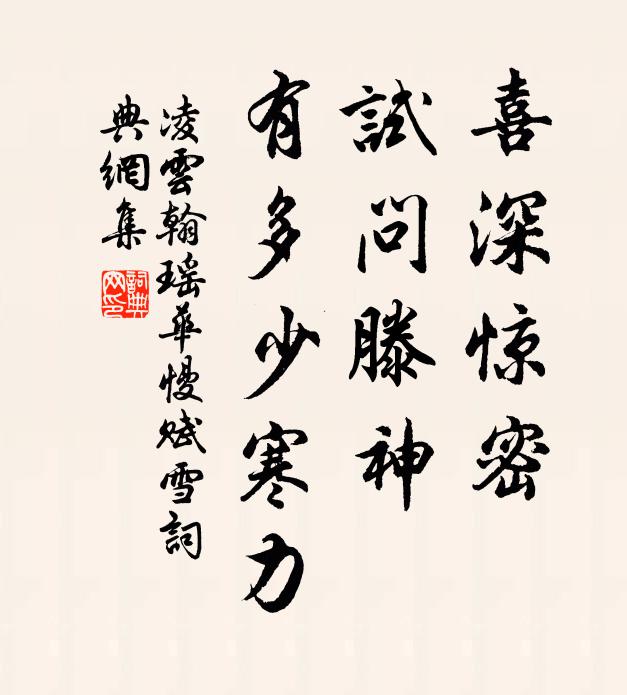 喜深惊密
試問滕神
有多少寒力
凌雲翰瑶華慢赋雪詞
典網集
詞典
网印